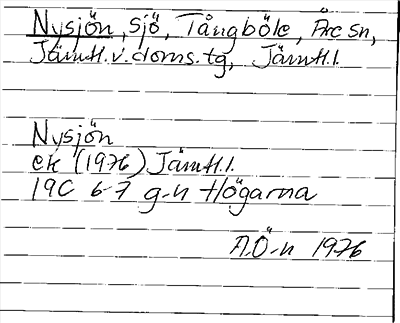 Nysjön, sjö, Tångböle, Åre sn,
Jämtl. v. doms. tg, Jämtl. l.
Nysjön
ek (1976) Jämtl. l.
19C 6-7 g-h Högarna
A.Ö-n 1976